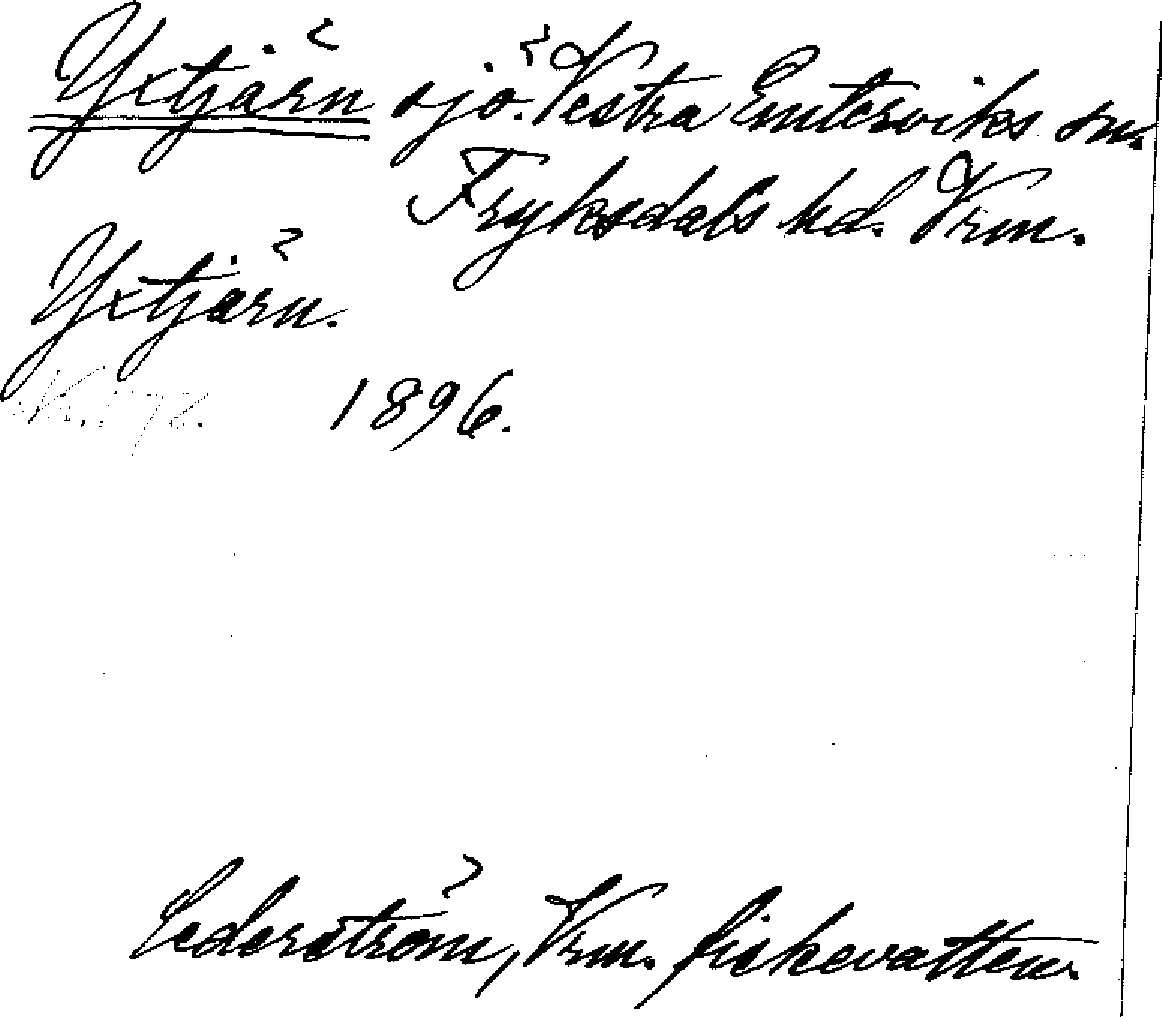 Yxtjärn sjö. Vestra Emterviks sn.
Fryksdals hd. Vrm.
Yxtjärn.
1896.
Cederström, Vrm. fiskevatten